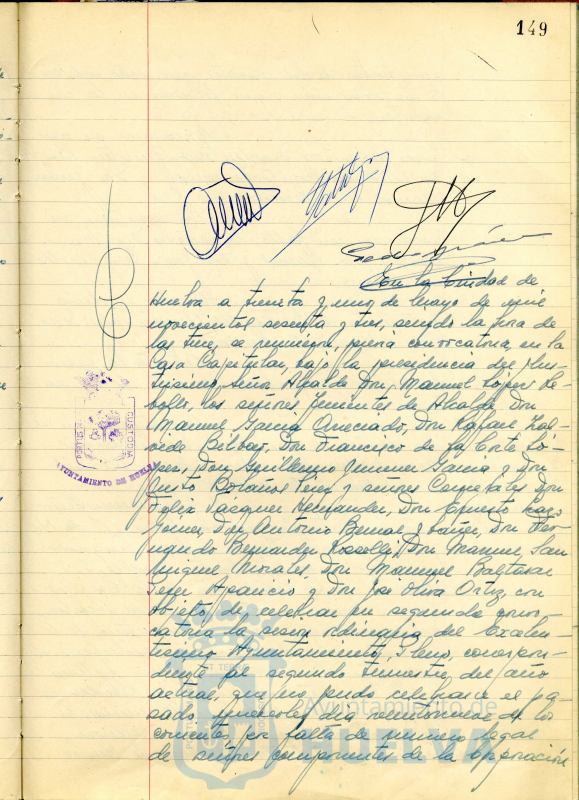 149
En la Ciudad de
Huelva a treinta y uno de Mayo de mil
novecientos sesenta y tres, siendo la hora de
las trece, se reunieron, previa convocatoria, en la
Casa Capitular, bajo la presidencia del Ilus-
trísimo Señor Alcalde Don Manuel López Re-
bollo, los señores Tenientes de Alcalde Don
Manuel García Don Rafael
Bilbao, Don Francisco de la Corte Ló-
pez, Don Guillermo Jimenez García y Don
Justo Bolaños Pérez y señores Concejales Don
Felix Vazquez Hernandez, Don Ernesto
Gomez, Don Antonio Bernal Ybañez, Don Fer-
nando Bernardez Rosselló, Don Manuel San
Miguel Morales, Don Manuel Baltasar
Aparicio y Don José Oliva Ortiz, con
objeto de celebrar en segunda convo-
catoria la sesión ordinaria del Excelen-
tísimo Ayuntamiento Pleno, correspon-
diente al segundo trimestre del año
actual, que no pudo celebrarse el pa-
sado miercoles dia veintinueve de los
corrientes, por falta de numero legal
de señores componentes de la Corporación
PORTUS
CUSTODIA
AYUNTAMIENTO DE HUELVA
Ayuntamiento de
HUELVA